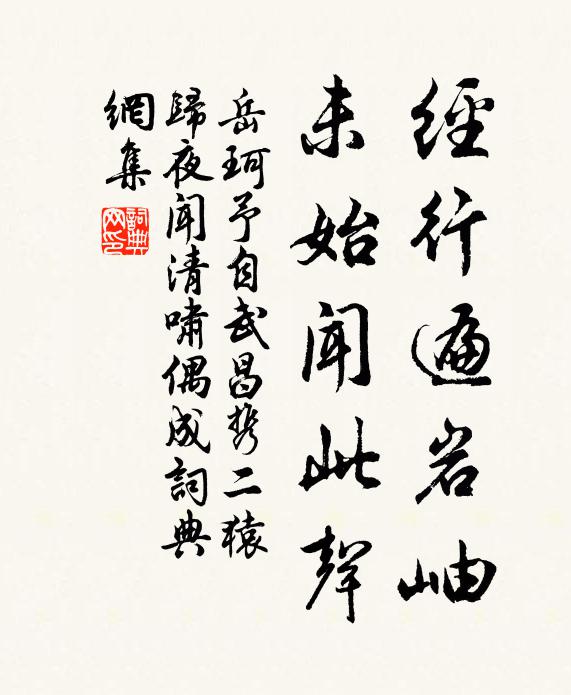 經行遍岩岫
未始聞此聲
岳珂予自武昌携二猿
歸夜聞清嘯偶成詞典
網集
詞典
网印